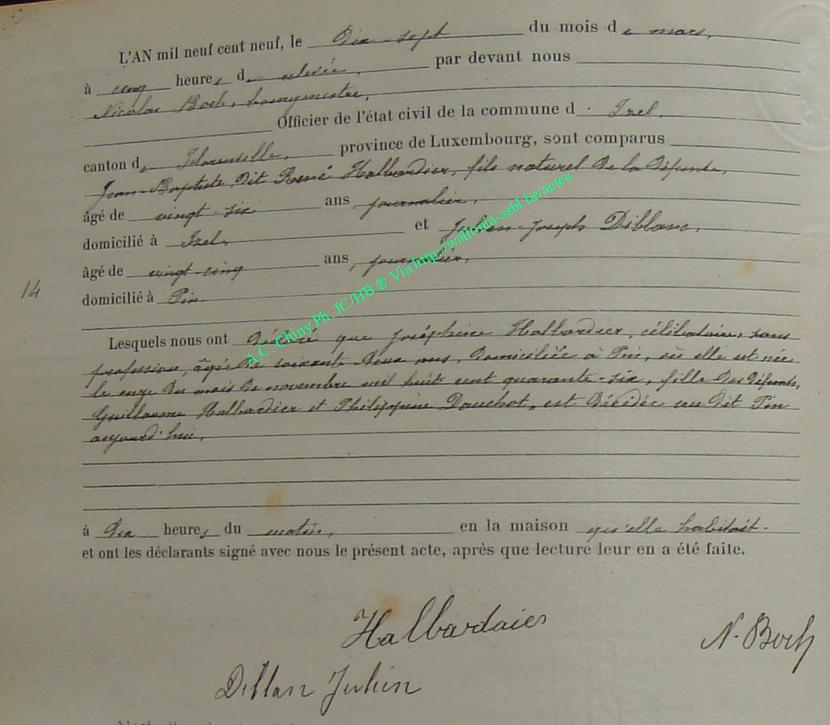 L'AN mil neuf cent neuf, le Dix-sept du mois de mars,
à cinq heures de relevée, par devant nous
Nicolas Boch, bourgmestre,
Officier de l'état civil de la commune d'Izel,
canton de Florenville, province de Luxembourg, sont comparus
Jean-Baptiste, dit René Halbardier, fils naturel de la défunte,
âgé de vingt-six ans, journalier,
domicilié à Izel, et Julien-Joseph Diblan,
âgé de vingt-cinq ans, journalier,
14
domicilié à Pin.
Lesquels nous ont déclaré que Joséphine Halbardier, célibataire, sans
profession, âgée de soixante deux ans, domiciliée à Pin, où elle est née
le onze du mois de novembre mil huit cent quarante-six, fille des défunts,
Guillaume Halbardier et Philippine Douchot, est décédée au dit Pin
aujourd'hui,
à dix heures du matin, en la maison qu'elle habitait.
et ont les déclarants signé avec nous le présent acte, après que lecture leur en a été faite.
Halbardaier
N. Boch
Dillan Julien
A.C. Chiny Ph. JC/HB ® Via http://wallonia-asbl.be/actes